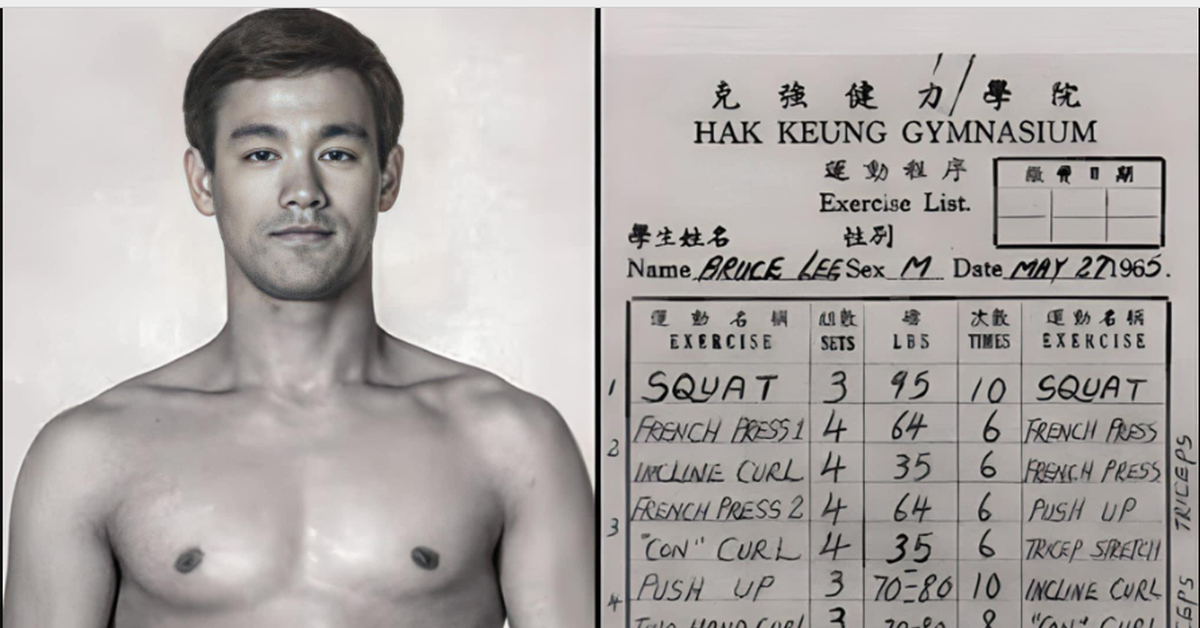 克強健力學院
HAK KEUNG GYMNASIUM
運動程序
Exercise List.
繳費日期
學生姓名 性別
Name BRUCE LEE Sex M Date MAY 27 1965.
運動名稱 組數 磅 次數 運動名稱
EXERCISE SETS LBS TIMES EXERCISE
1 SQUAT 3 95 10 SQUAT
2 FRENCH PRESS 1 4 64 6 FRENCH PRESS
INCLINE CURL 4 35 6 FRENCH PRESS
3 FRENCH PRESS 2 4 64 6 PUSH UP
"CON" CURL 4 35 6 TRICEP STRETCH
4 PUSH UP 3 70-80 10 INCLINE CURL
TWO HAND CURL 3 70-80 8 "CON" CURL
TRICEPS